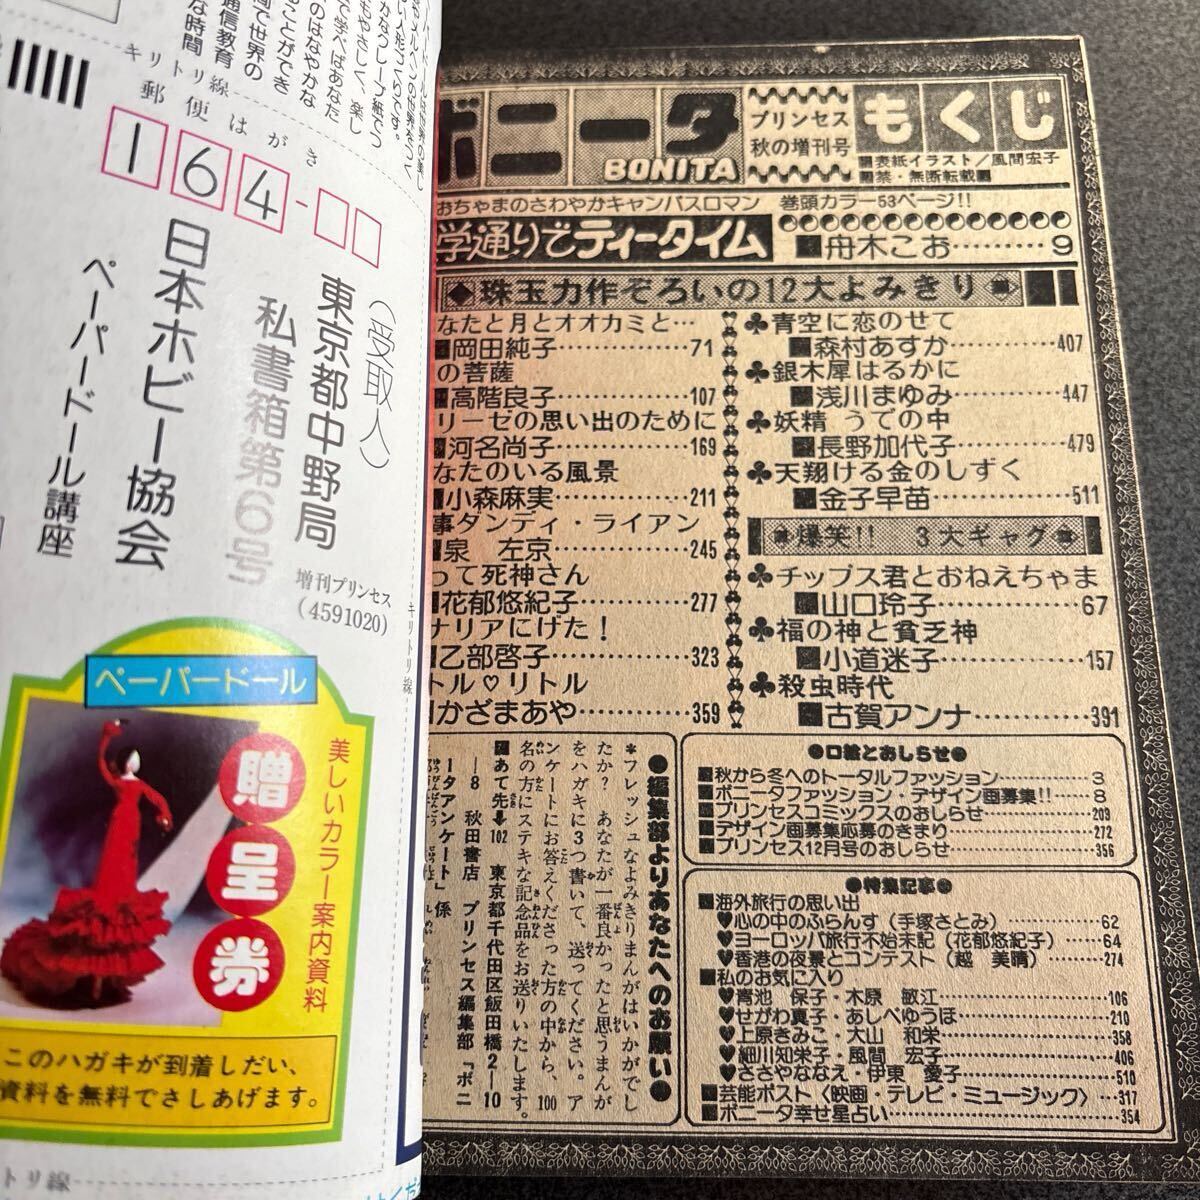 画で世界の
通信教育
な時間
キリトリ線
郵便はがき
164-
(受取人)
東京都中野局
私書箱第6号
日本ホビー協会
ペーパードール講座
増刊プリンセス
(4591020)
キリトリ線
ペーパードール
美しいカラー案内資料
贈呈券
このハガキが到着しだい、
資料を無料でさしあげます。
トリ線
ボニータ
BONITA
プリンセス
秋の増刊号
もくじ
■表紙イラスト/風間宏子
■禁・無断転載■
おちゃまのさわやかキャンパスロマン 巻頭カラー53ページ!!
学通りでティータイム
■舟木こお………9
◆珠玉力作ぞろいの12大よみきり
なたと月とオオカミと…
■岡田純子………71
の菩薩
■高階良子………107
リーゼの思い出のために
■河名尚子………169
なたのいる風景
■小森麻実………211
事ダンディ・ライアン
■泉 左京………245
って死神さん
■花郁悠紀子………277
ナリアにげた!
■乙部啓子………323
トル♡リトル
■かざまあや………359
♣青空に恋のせて
■森村あすか………407
♣銀木犀はるかに
■浅川まゆみ………447
♣妖精 うでの中
■長野加代子………479
♣天翔ける金のしずく
■金子早苗………511
爆笑!! 3大ギャグ
♣チップス君とおねえちゃま
■山口玲子………67
♣福の神と貧乏神
■小道迷子………157
♣殺虫時代
■古賀アンナ………391
●編集部よりあなたへのお願い●
*フレッシュなよみきりまんがはいかがでし
たか? あなたが一番良かったと思うまんが
をハガキに3つ書いて、送ってください。ア
ンケートにお答えくださった方の中から、100
名の方にステキな記念品をお送りいたします。
■あて先➡102 東京都千代田区飯田橋2-10
-8 秋田書店 プリンセス編集部『ボニ
ータアンケート』係
●口絵とおしらせ●
■秋から冬へのトータルファッション………3
■ボニータファッション・デザイン画募集!!……8
■プリンセスコミックスのおしらせ………209
■デザイン画募集応募のきまり………272
■プリンセス12月号のおしらせ………356
●特集記事●
■海外旅行の思い出
♥心の中のふらんす(手塚さとみ)………62
♥ヨーロッパ旅行不始末記(花郁悠紀子)………64
♥香港の夜景とコンテスト(越 美晴)………274
■私のお気に入り
♥青池 保子・木原 敏江………106
♥せがわ真子・あしべゆうほ………210
♥上原きみこ・大山 和栄………358
♥細川知栄子・風間 宏子………406
♥ささやななえ・伊東 愛子………510
■芸能ポスト〈映画・テレビ・ミュージック〉……317
■ボニータ幸せ星占い………354